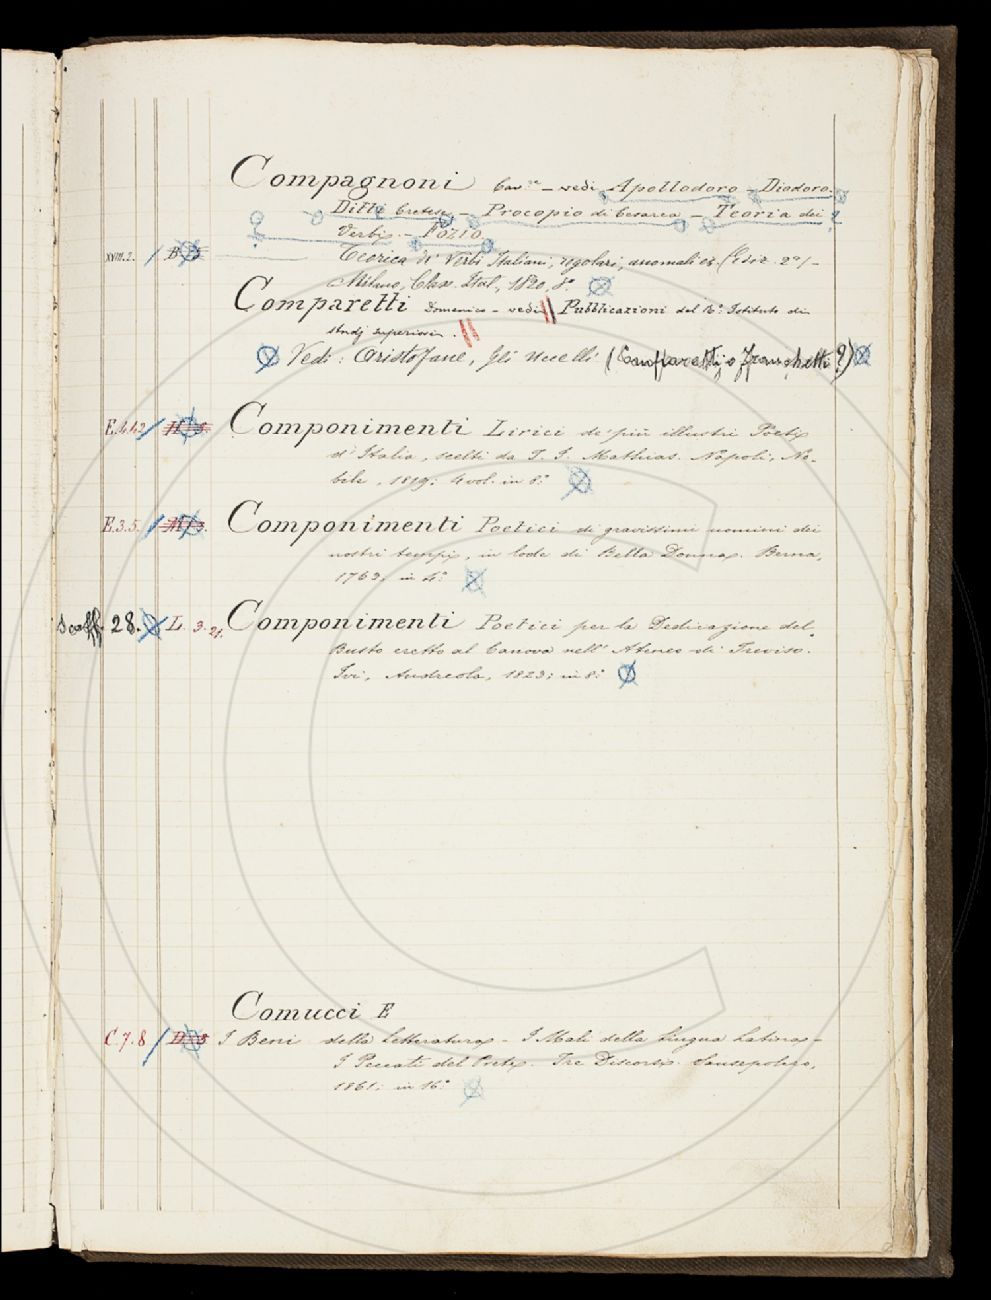 Compagnoni Cav.re – vedi Apollodoro – Diodoro.
Ditti Cretese – Procopio di Cesarea – Teoria dei ?
Verbi. – Fozio
XVIII.2. / B Teorica de' Verbi Italiani, regolari, anomali ec. (Ediz. 2ª) –
Milano, Class. Ital., 1820, 8º
Comparetti Domenico – vedi Pubblicazioni del R.º Istituto di
studj superiori.
Vedi: Aristofane, Gli Uccelli (Comparetti o Franchetti?)
E.4.42 / Componimenti Lirici de' più illustri Poeti
d'Italia, scelti da T. J. Mathias. Napoli, No-
bile, 1819; 4 vol. in 8º
E.3.5. / M Componimenti Poetici di gravissimi uomini dei
nostri tempi, in lode di Bella Donna. Berna,
in 4º
Scaff. 28. L. 3. 21. Componimenti Poetici per la Dedicazione del
Busto eretto al Canova nell' Ateneo di Treviso.
Ivi, Andreola, 1823; in 8º
Comucci E
C.7.8 / D. I Beni della Letteratura – I Mali della Lingua Latina –
I Peccati dei Poeti. Tre Discorsi. Sansepolcro,
1861; in 16º